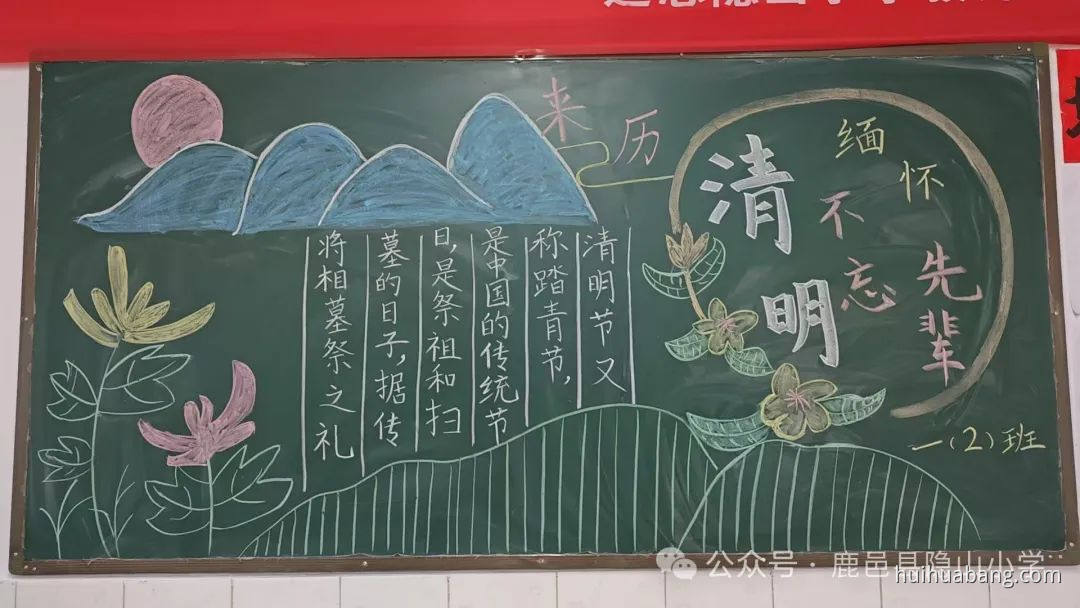 来历
清明
缅怀先辈
不忘
清明节又
称踏青节，
是中国的传统节
日，是祭祖和扫
墓的日子，据传
将相墓祭之礼
一（2）班
公众号·鹿邑县隐山小学
huihuabang.com